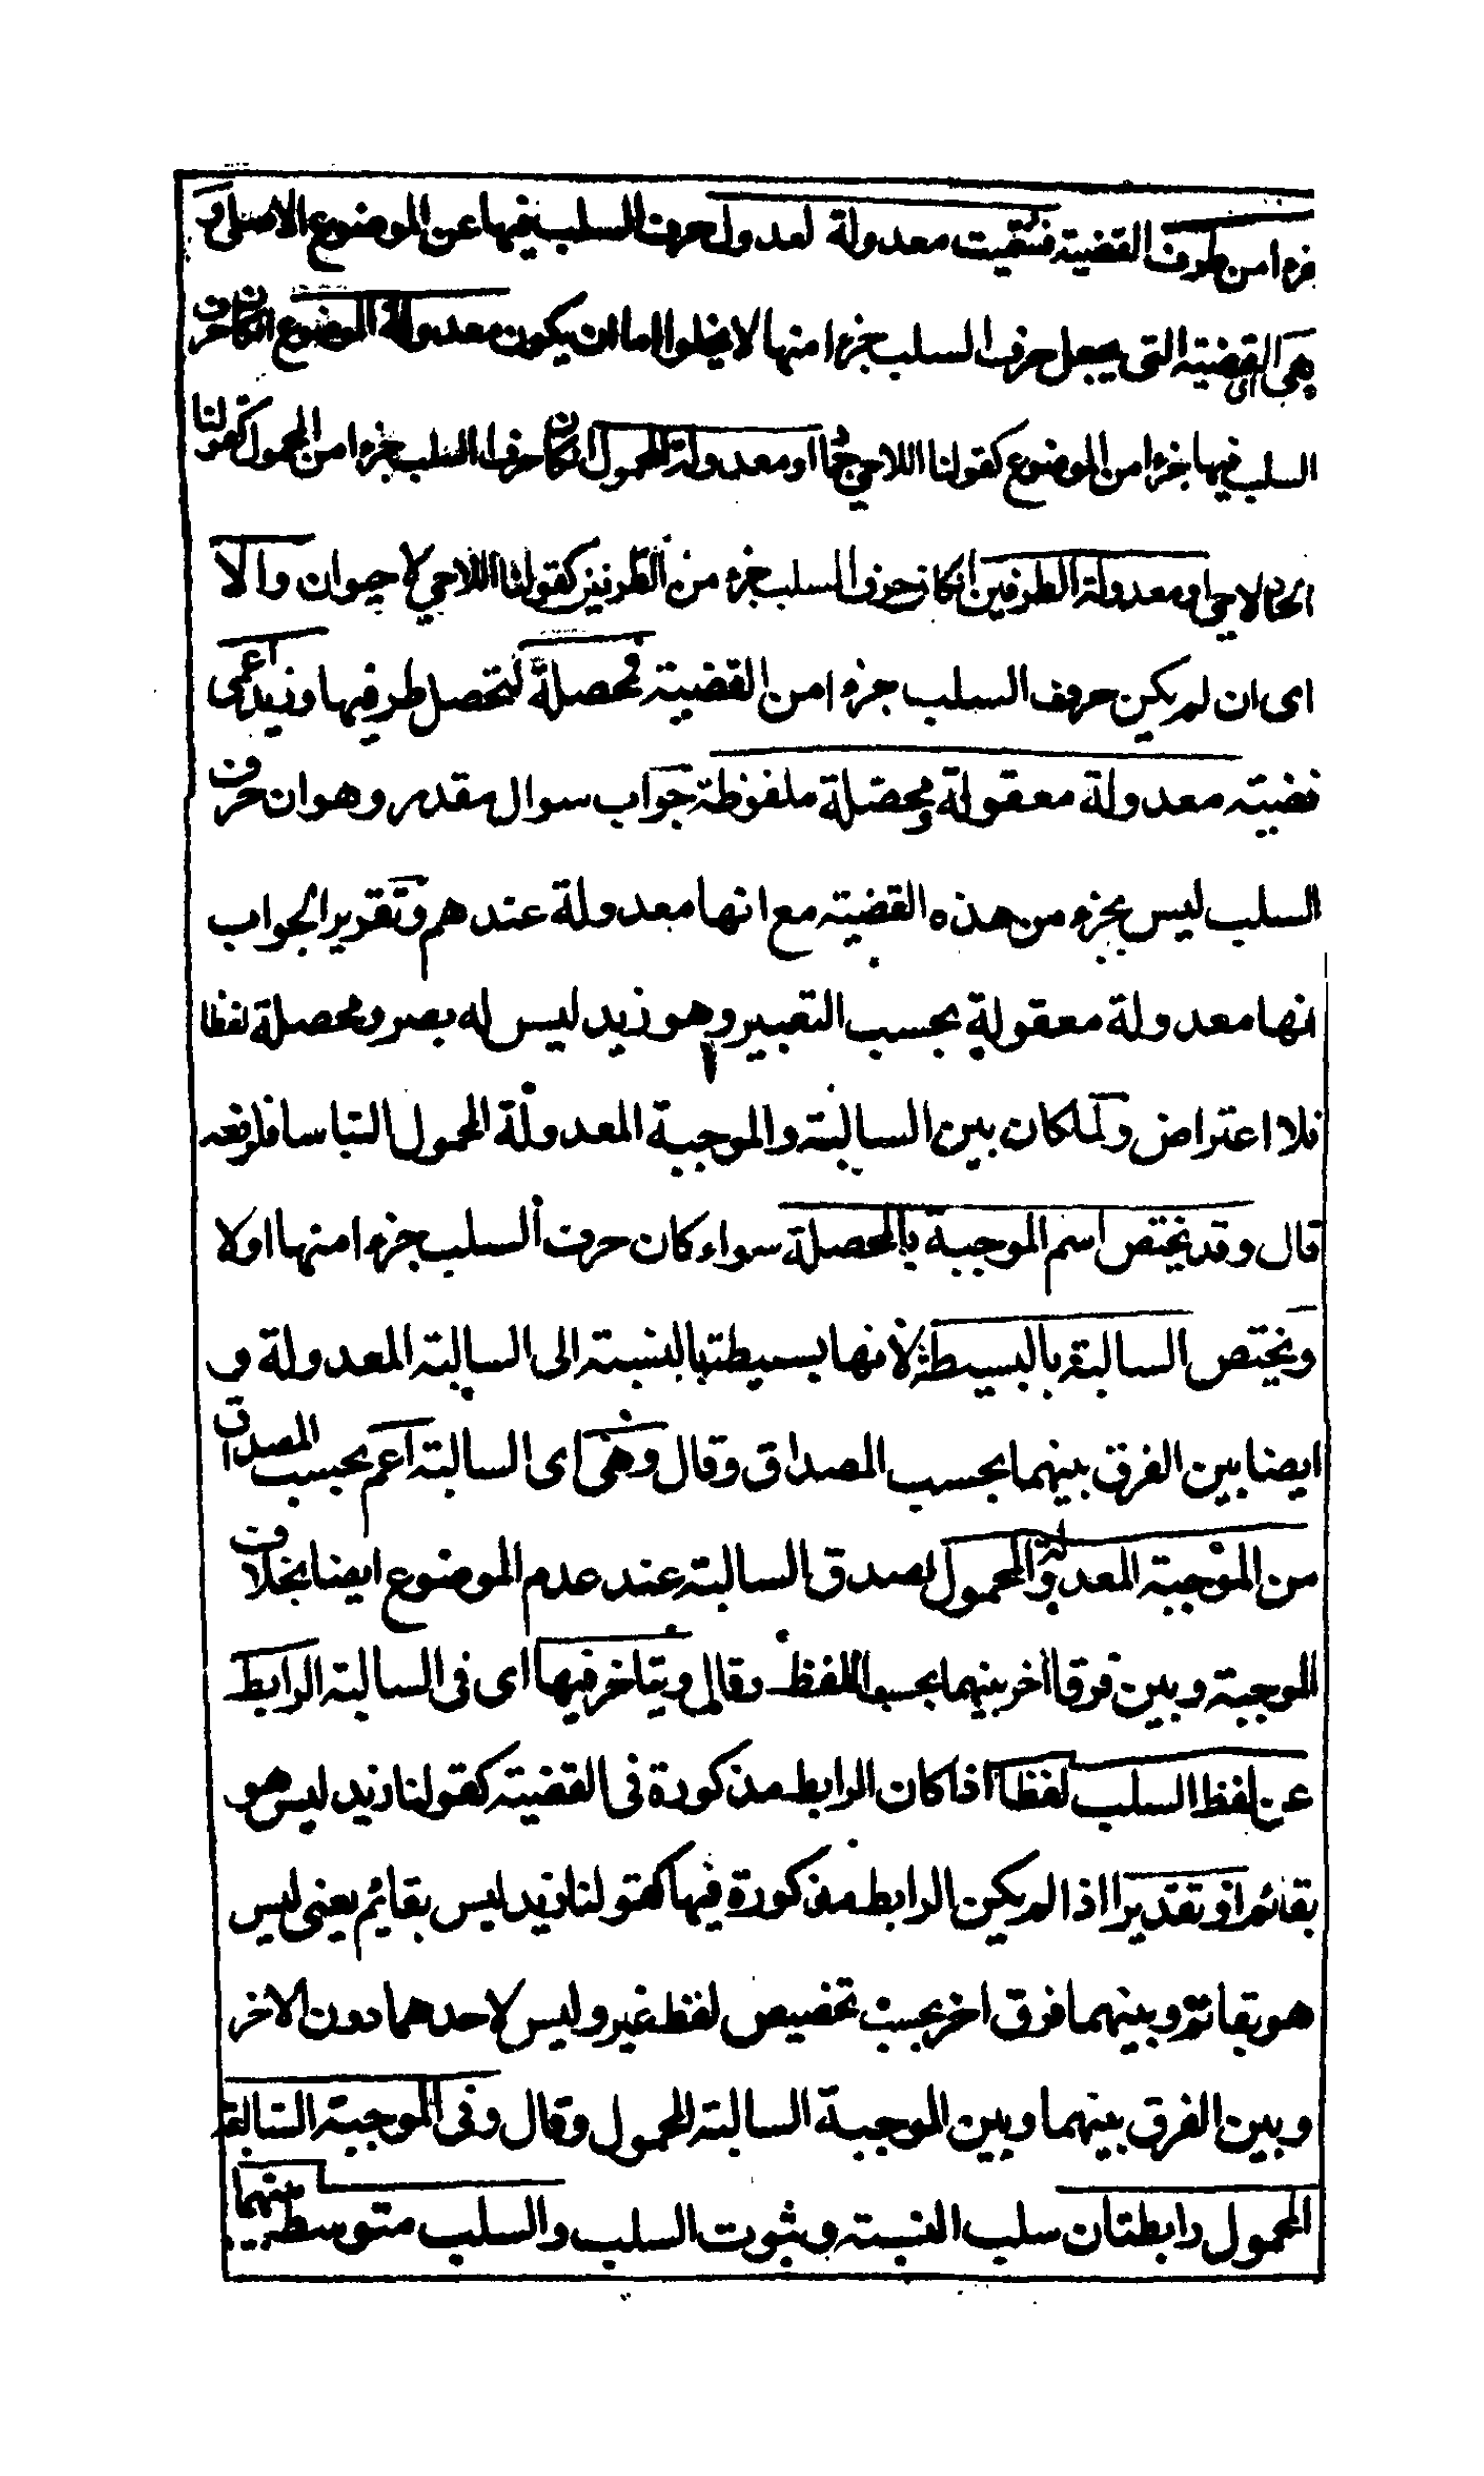 جزء من طرف القضية فسميت معدولة لعدول حرف السلب فيها عن الموضوع الاصلى و
هى القضية التى يجعل حرف السلب جزءا منها لا يخلوا اما ان يكون معدولة الموضوع انكان حرف
السلب فيها جزءا من الموضوع كقولنا اللاحى جماد او معدولة المحمول انكان حرف السلب جزءا من المحمول كقولنا
الجماد لا حى او معدولة الطرفين انكان حرف السلب جزء من الطرفين كقولنا اللاحى لا حيوان والا
اى ان لم يكن حرف السلب جزءا من القضية فمحصلة لتحصل طرفيها وزيد اعمى
قضية معدولة معقولة ومحصلة ملفوظة جواب سوال مقدر وهو ان حرف
السلب ليس بجزء من هذه القضية مع انها معدولة عندهم وتقرير الجواب
انها معدولة معقولة بحسب التعبير وهو زيد ليس له بصر ومحصلة لفظا
فلا اعتراض ولما كان بين السالبة والموجبة المعدولة المحمول التباسا فلرفعه
قال وقد يختص اسم الموجبة بالمحصلة سواء كان حرف السلب جزءا منها اولا
ويختص السالبة بالبسيطة لانها بسيطة بالنسبة الى السالبة المعدولة و
ايضا بين الفرق بينهما بحسب المصداق وقال وهى اى السالبة اعم بحسب المصداق
من الموجبة المعدولة المحمول لصدق السالبة عند عدم الموضوع ايضا بخلاف
الموجبة وبين فرقا اخر بينهما بحسب اللفظ وقال ويتاخر فيها اى فى السالبة الرابط
عن لفظ السلب لفظا اذا كان الرابط مذكورة فى القضية كقولنا زيد ليس هو
بقائم او تقديرا اذا لم يكن الرابط مذكورة فيها كقولنا زيد ليس بقايم يعنى ليس
هو بقائم وبينهما فرق اخر بحسب تخصيص لفظ غير وليس لاحدهما دون الاخر
وبين الفرق بينهما وبين الموجبة السالبة المحمول وقال وفى الموجبة السالبة
المحمول رابطتان سلب النسبة وثبوت السلب والسلب متوسط بينهما